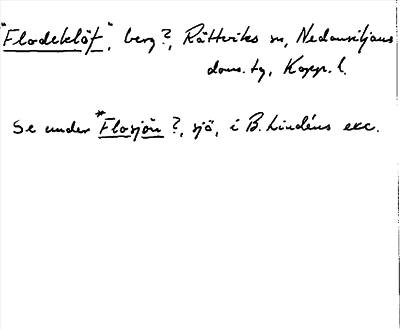 "Flodeklöf", berg?, Rättviks sn, Nedansiljans
doms. tg, Kopp. l.
Se under *Flosjön ?, sjö, i B. Lindéns exc.